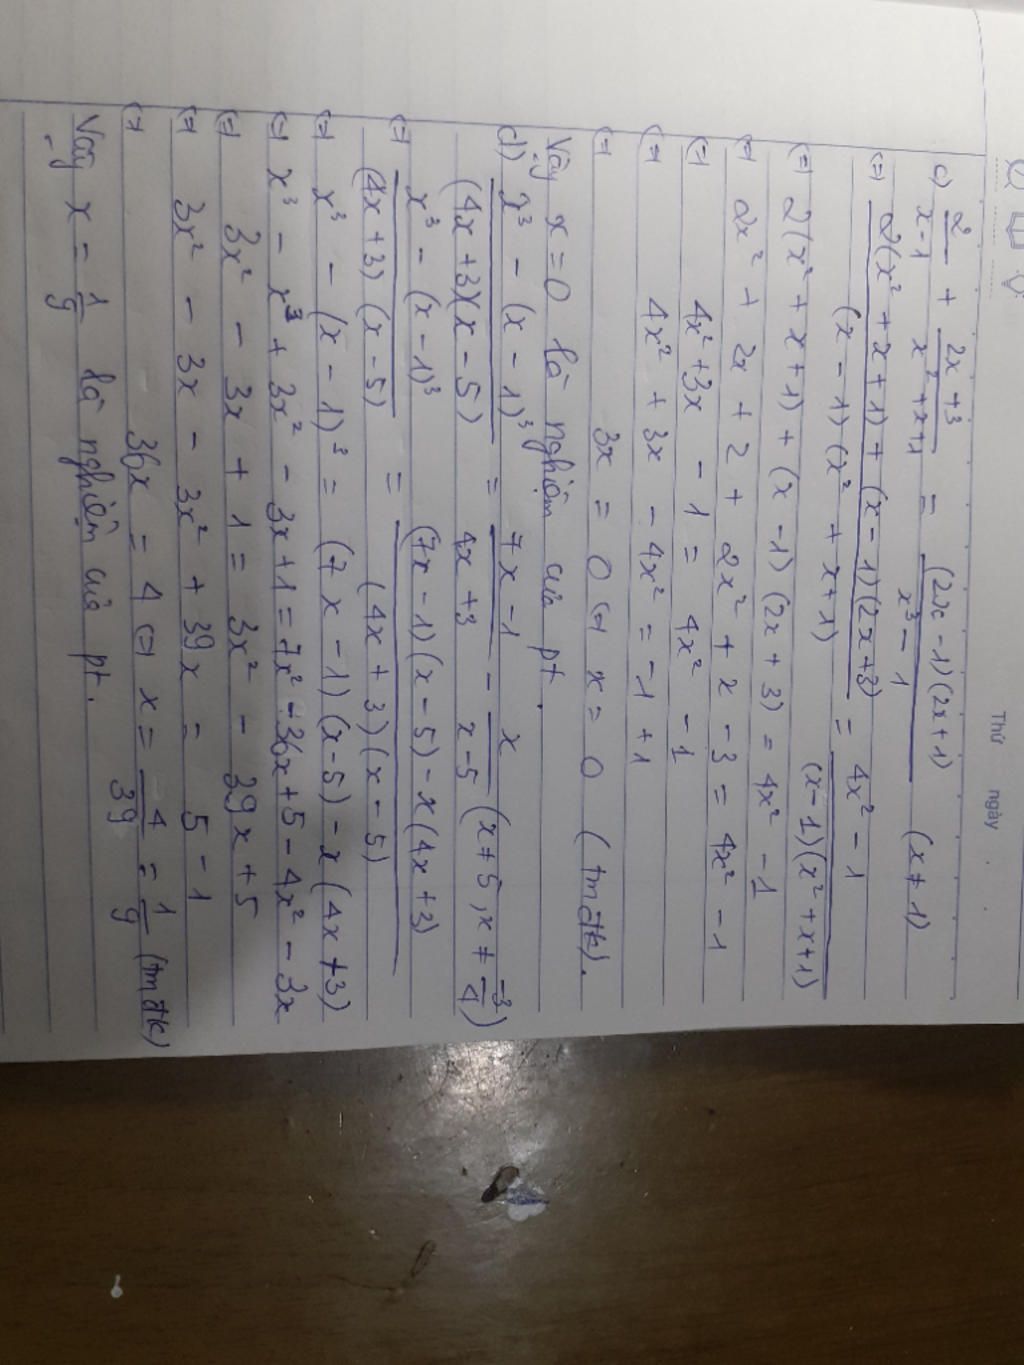 Thứ ngày
c) 2/(x-1) + (2x+3)/(x²+x+1) = (2x-1)(2x+1)/(x³-1) (x≠1)
(=) (2(x²+x+1)+(x-1)(2x+3))/((x-1)(x²+x+1)) = (4x²-1)/((x-1)(x²+x+1))
(=) 2(x²+x+1)+(x-1)(2x+3) = 4x²-1
(=) 2x²+2x+2+2x²+x-3 = 4x²-1
(=) 4x²+3x-1 = 4x²-1
(=) 4x²+3x-4x² = -1+1
(=) 3x = 0 (=) x = 0 (tmđk).
Vậy x=0 là nghiệm của pt.
d) (x³-(x-1)³)/((4x+3)(x-5)) = (7x-1)/(4x+3) - x/(x-5) (x≠5, x≠-3/4)
(=) (x³-(x-1)³)/((4x+3)(x-5)) = ((7x-1)(x-5)-x(4x+3))/((4x+3)(x-5))
(=) x³-(x-1)³ = (7x-1)(x-5)-x(4x+3)
(=) x³-x³+3x²-3x+1 = 7x²-36x+5-4x²-3x
(=) 3x²-3x+1 = 3x²-39x+5
(=) 3x²-3x-3x²+39x = 5-1
(=) 36x = 4 (=) x = 4/39 = 1/9 (tmđk)
Vậy x = 1/9 là nghiệm của pt.